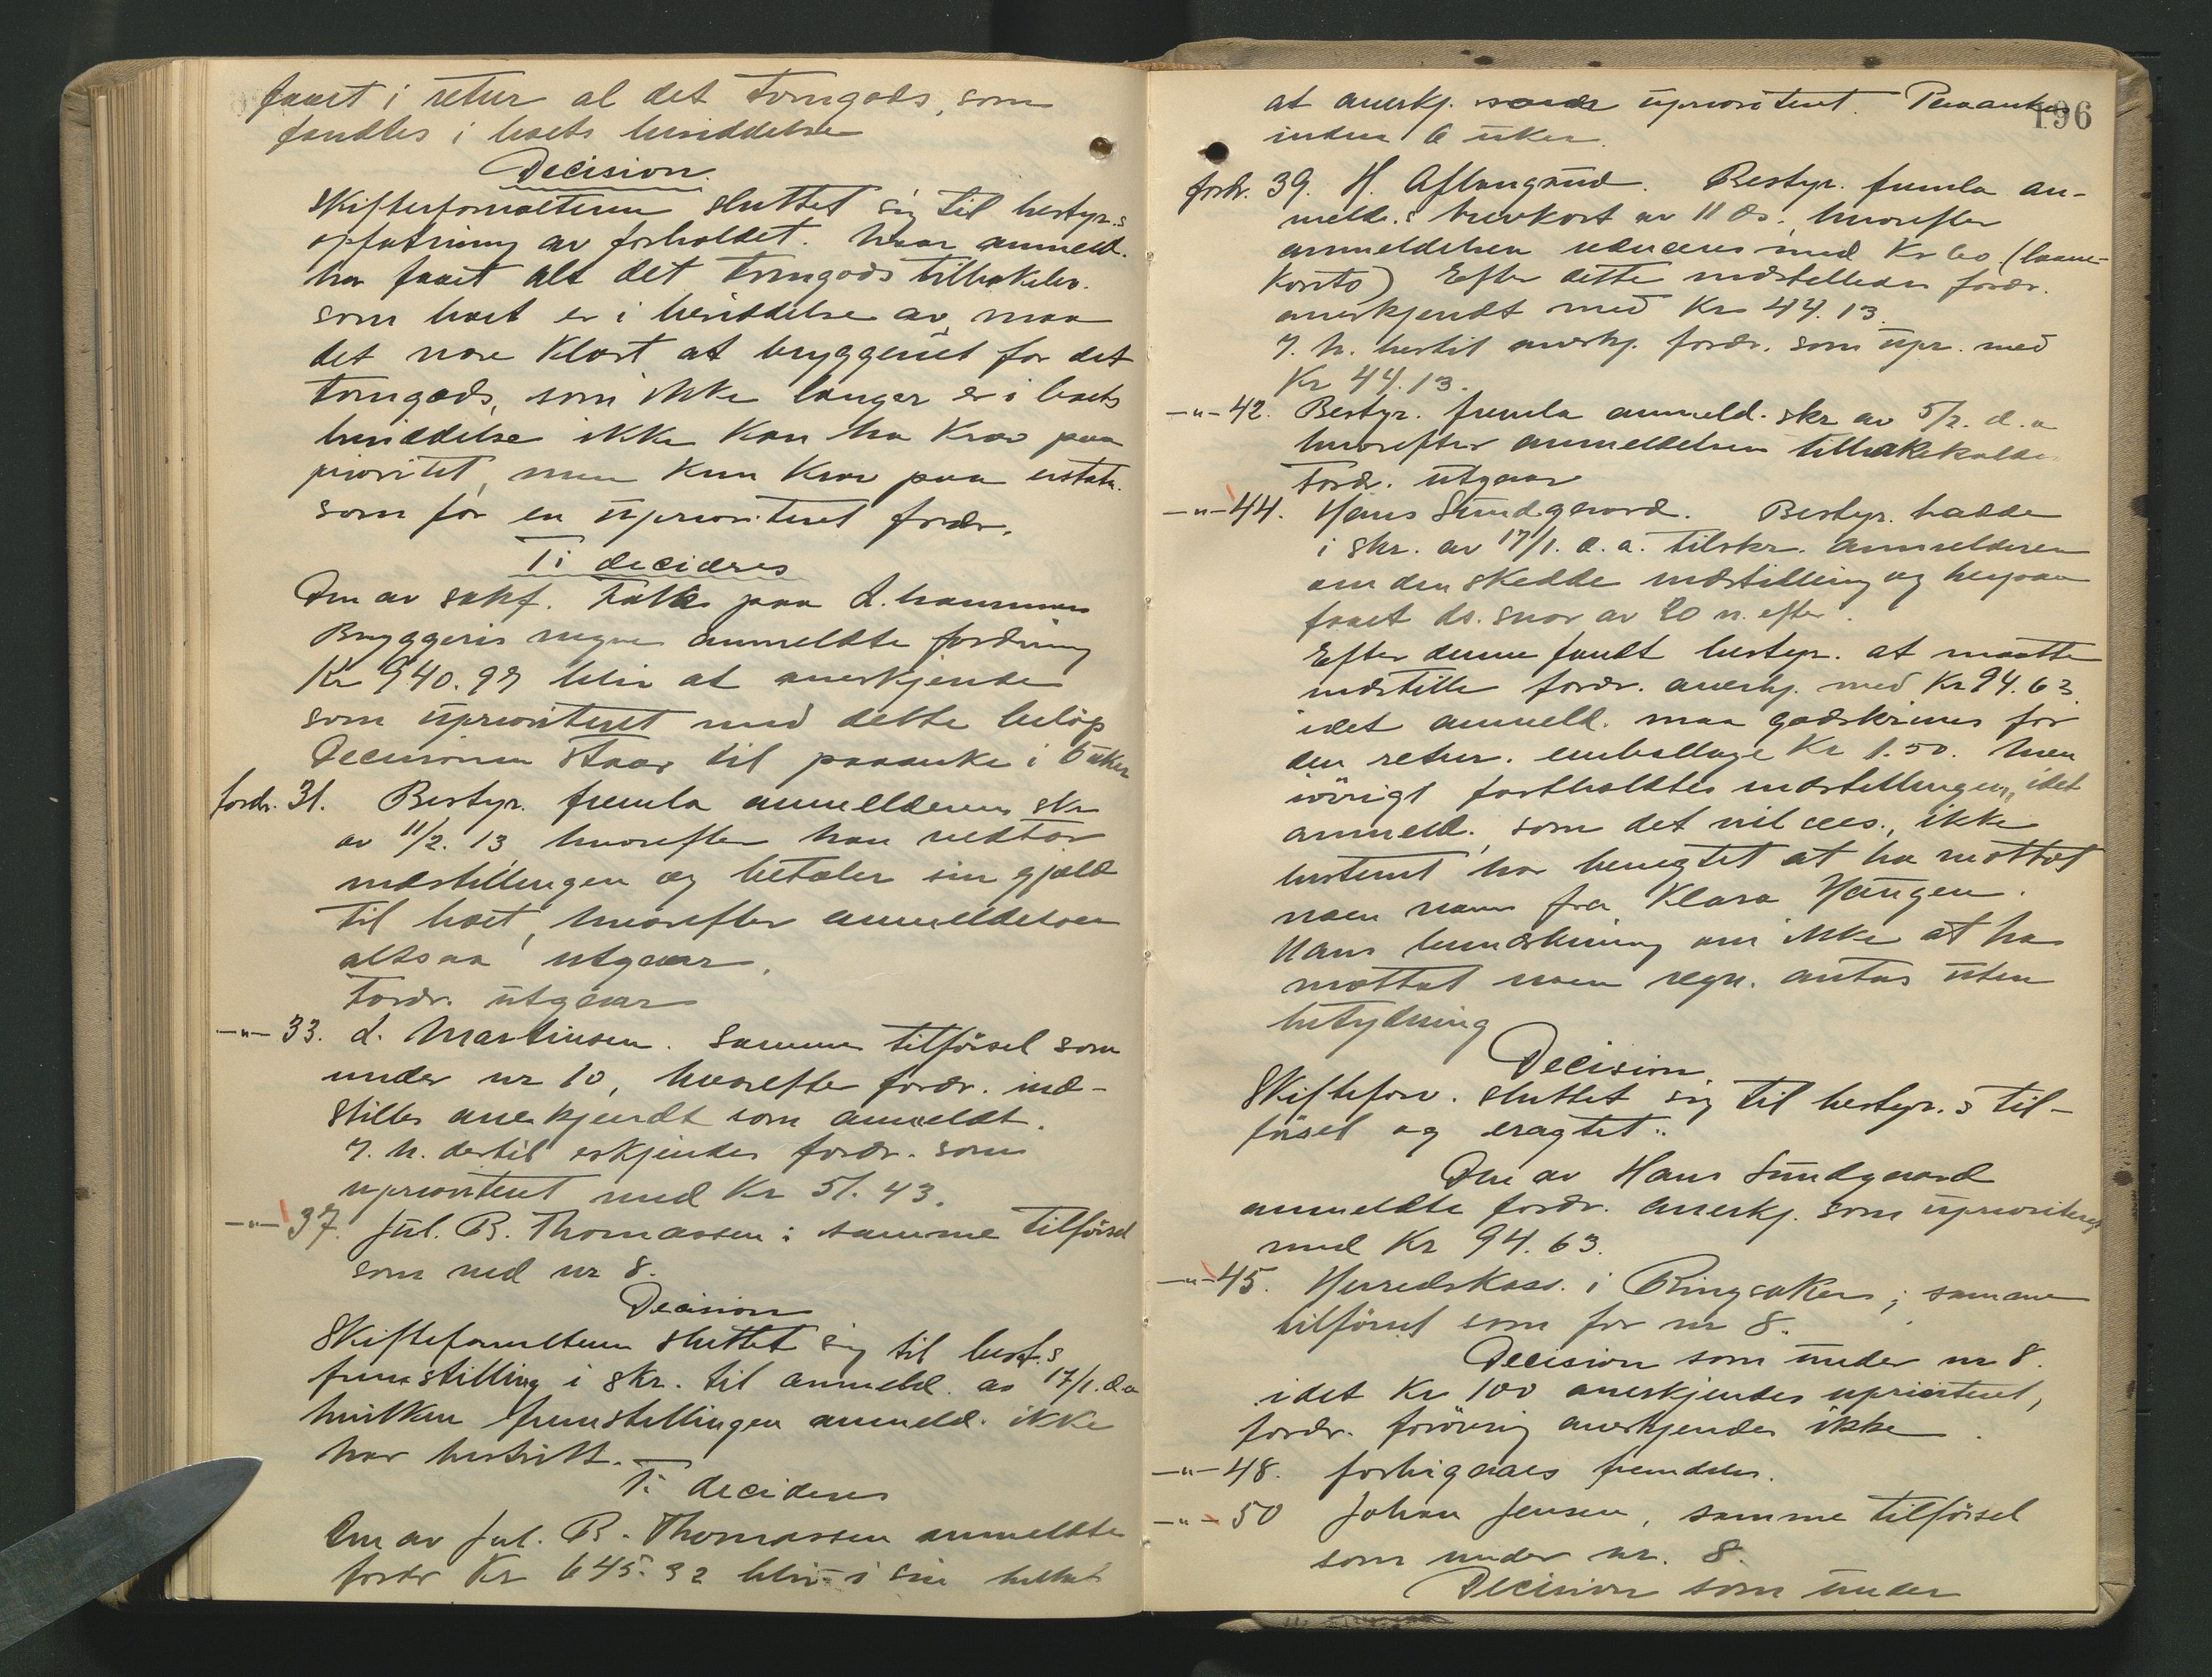 faaet i retur al det tomgods, som
fandtes i boets besiddelse
Decision.
Skifteforvalteren sluttet sig til bestyr.s
opfatning av forholdet. Naar anmeld.
har faaet alt det tomgods tilbakelev.
som boet er i besiddelse av, maa
det være klart at bryggeriet for det
tomgods, som ikke længer er i boets
besiddelse ikke kan ha krav paa
prioritet, men kun krav paa erstatn.
som for en uprioritert fordr.
Ti decideres
Den av sakf. Falk paa L.hammer
Bryggeris vegne anmeldte fordring
Kr 940.97 blir at anerkjende
som uprioritert med dette beløp
Decisionen staar til paaanke i 6 uker
fordr. 31. Bestyr. fremla anmelderens skr
av 11/2. 13 hvorefter han vedtar
indstillingen og betaler sin gjæld
til boet, hvorefter anmeldelsen
altsaa utgaar.
Fordr. utgaar
—"— 33. d. Martinsen. Samme tilførsel som
under nr 10, hvorefter fordr. ind-
stilles anerkjendt som anmeldt.
I. h. dertil erkjendes fordr. som
uprioritert med Kr 51.43.
—"— 37. Jul. B. Thomassen: samme tilførsel
som ved nr 8.
Decision
Skifteforvalteren sluttet sig til best.s
fremstilling i skr. til anmeld. av 17/1. d.a
hvilken fremstillingen anmeld. ikke
har bestridt.
Ti decideres
Den av Jul. B. Thomassen anmeldte
fordr Kr 645.32 blir i sin helhet
196
at anerkj. som uprioritert. Paaankes
inden 6 uker.
fordr. 39. H. Aflangrud. Bestyr. fremla an-
meld.s brevkort av 11 ds, hvorefter
anmeldelsen reduceres med Kr 60 (laane-
konto) Efter dette indstilledes fordr.
anerkjendt med Kr 44.13.
I. h. hertil anerkj. fordr. som upr. med
Kr 44.13.
—"— 42. Bestyr. fremla anmeld. skr av 5/2. d.a
hvorefter anmeldelsen tilbakekaldes
Fordr. utgaar
—"— 44. Hans Sundgaard. Bestyr. hadde
i skr. av 17/1. d.a. tilskr. anmelderen
om den skedde indstilling og herpaa
faaet ds. svar av 20 n. efter.
Efter denne fandt bestyr. at maatte
indstille fordr. anerkj. med Kr 94.63
idet anmeld. maa godskrives for
den retur. emballage Kr 1.50. Men
iövrigt fastholdtes indstillingen, idet
anmeld., som det vil sees., ikke
bestemt har benegtet at ha mottat
noen varer fra Klara Haugen.
Hans bemerkning om ikke at ha
mottat noen regn. antas uten
betydning
Decision
Skifteforv. sluttet sig til bestyr.s til-
førsel og eragtet:
Den av Hans Sundgaard
anmeldte fordr. anerkj. som uprioritert
med Kr 94.63.
—"— 45. Herredskass. i Ringsaker; samme
tilførsel som for nr 8.
Decision som under nr 8.
idet Kr 100 anerkjendes uprioritert,
fordr. forövrig anerkjendes ikke.
—"— 48. forbigaaes fremdeles.
—"— 50 Johan Jensen, samme tilførsel
som under nr. 8.
Decision som under